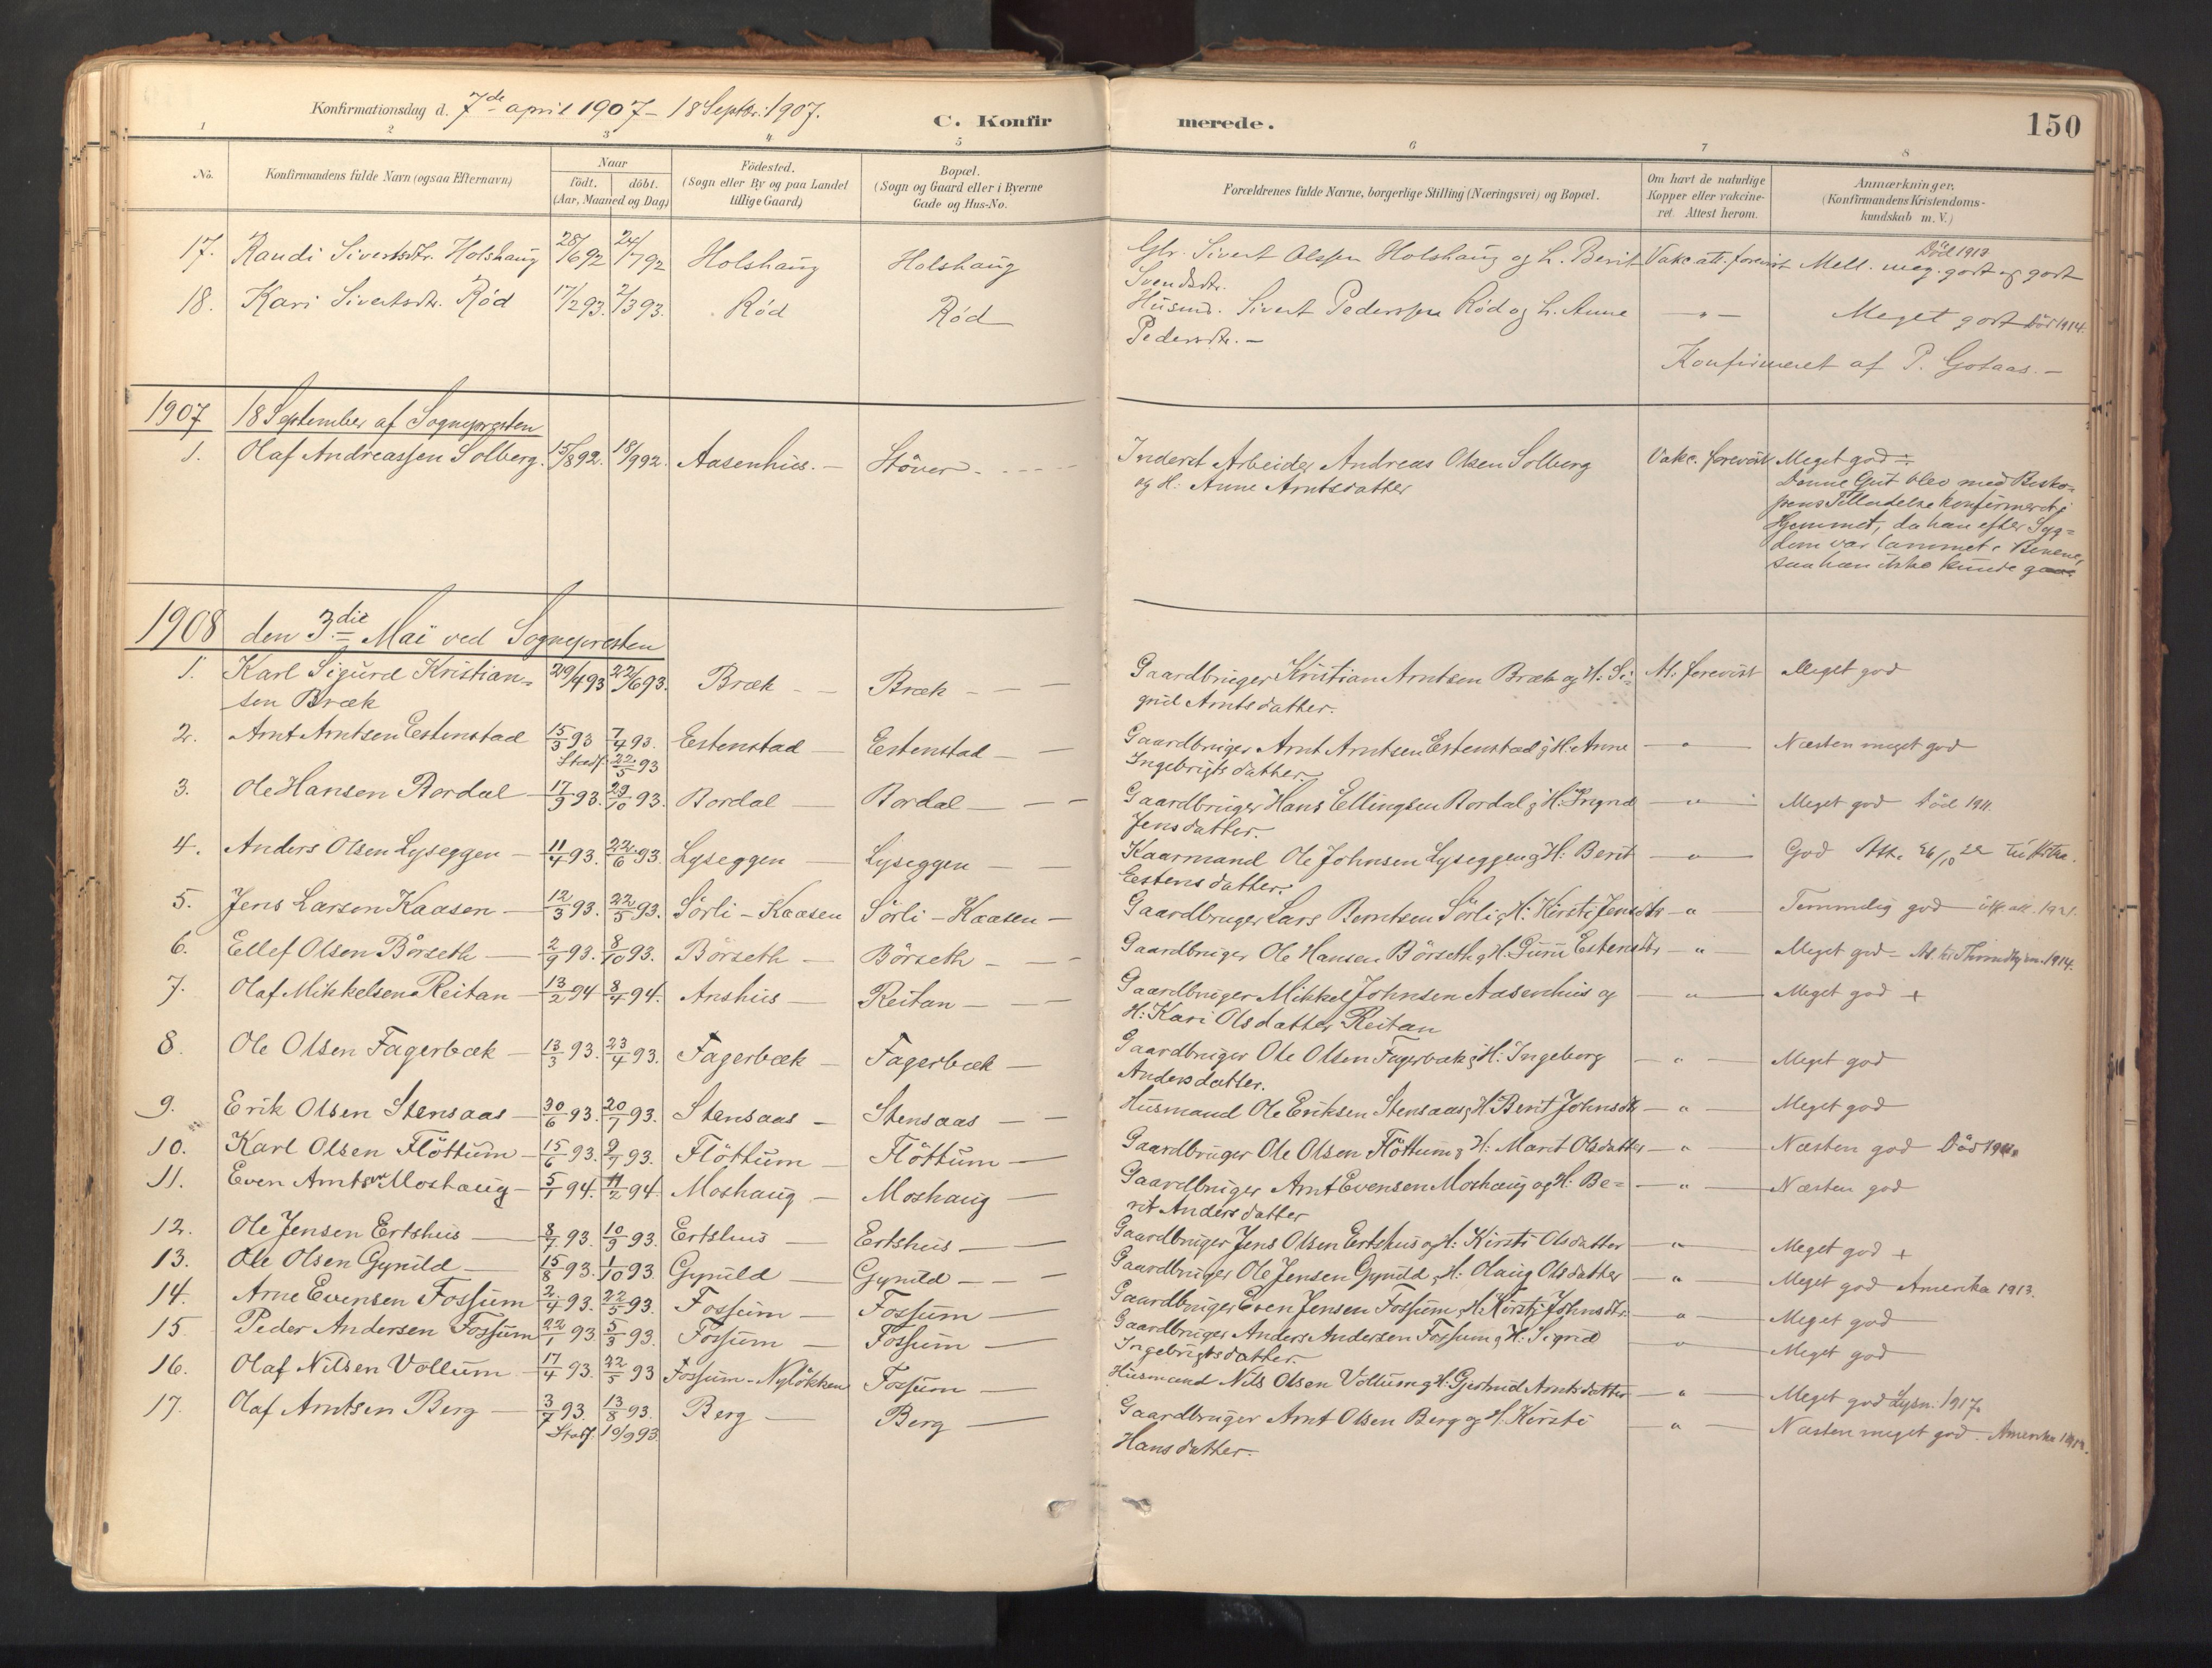 Konfirmationsdag d. 7de april 1907 – 18 Septbr. 1907.
C. Konfirmerede.
150
1 2 3 4 5 6 7 8
No. Konfirmandens fulde Navn (ogsaa Efternavn) Naar født. døbt. (Aar, Maaned og Dag) Födested. (Sogn eller By og paa Landet tillige Gaard) Bopæl. (Sogn og Gaard eller i Byerne Gade og Hus-No. Forældrenes fulde Navne, borgerlige Stilling (Næringsvei) og Bopæl. Om havt de naturlige Kopper eller vakcineret. Attest herom. Anmærkninger. (Konfirmandens Kristendomskundskab m. V.)
17. Randi Sivertsdtr. Holshaug 28/6 92 24/7 92 Holshaug Holshaug Gbr. Sivert Olssen Holshaug og h. Berit Vakc. att. forevist Mell. meg. godt og godt Död 1913
Svendsdtr.
18. Kari Sivertsdtr. Rød 17/2 93. 2/3 93. Rød Rød Husmd. Sivert Pederssen Rød og h. Anne – " – Meget godt Död 1914.
Pedersdtr. –
Konfirmeret af P. Gotaas. –
1907 18 September af Sognepresten
1. Olaf Andreassen Solberg. 15/8 92. 18/9 92. Aasenhus. – Støver – Inderst Arbeider Andreas Olsen Solberg Vakc. forevist Meget god ÷
og H: Anne Arntsdatter
Denne Gut blev med Bisko-
pens Tilladelse konfirmert i
Hjemmet, da han efter Syg-
dom var lammet i Benene,
saa han ikke kunde gaa
1908 den 3die Mai ved Sognepresten
1. Karl Sigurd Kristian- 29/4 93 22/6 93. Bræk – Bræk – Gaardbruger Kristian Arntsen Bræk og H: Si- At. forevist Meget god
sen Bræk grid Arntsdatter.
2. Arnt Arntsen Estenstad 15/3 93 7/4 93. Estenstad – Estenstad – Gaardbruger Arnt Arntsen Estenstad og H: Anne – " – Næsten meget god
Stadf. 22/5 93 Ingebrigtsdatter.
3. Ole Hansen Bordal – 17/9 93. 29/10 93. Bordal – Bordal – Gaardbruger Hans Ellingsen Bordal og H: Ingrid – " – Meget god Död 1911.
Jensdatter.
4. Anders Olsen Lyseggen – 11/4 93. 22/6 93. Lyseggen – Lyseggen – Kaarmand Ole Johnsen Lyseggen og H: Berit – " – God Att. 26/10 22
Estensdatter.
5. Jens Larsen Kaasen – 12/3 93. 22/5 93. Sörli – Kaasen Sörli – Kaasen – Gaardbruger Lars Berntsen Sörli og H: Kirsti Jensdtr – " – Temmelig god – utf. att. 1921.
6. Ellef Olsen Börseth – 2/9 93. 8/10 93. Börseth – Börseth – Gaardbruger Ole Hansen Börseth og H: Guru Estensdtr – " – Meget god – At. til Throndhjem 1914.
7. Olaf Mikkelsen Reitan – 13/2 94 8/4 94. Aashus – Reitan – Gaardbruger Mikkel Johnsen Aasenhus og – " – Meget god +
H: Kari Olsdatter Reitan
8. Ole Olsen Fagerbæk – 13/3 93. 23/4 93. Fagerbæk – Fagerbæk – Gaardbruger Ole Olsen Fagerbæk og H: Ingeborg – " – Meget god
Andersdatter.
9. Erik Olsen Stensaas – 30/6 93. 20/7 93. Stensaas – Stensaas – Husmand Ole Eriksen Stensaas og H: Berit Johnsdtr – " – Meget god
10. Karl Olsen Flöttum – 15/6 93. 9/7 93. Flöttum – Flöttum – Gaardbruger Ole Olsen Flöttum og H: Marit Olsdatter – " – Næsten god Död
11. Even Arntsen Moshaug – 5/1 94. 11/2 94. Moshaug – Moshaug – Gaardbruger Arnt Evensen Moshaug og H: Be- – " – Næsten god
rit Andersdatter
12. Ole Jensen Ertshus – 8/7 93. 10/9 93. Ertshus – Ertshus – Gaardbruger Jens Olsen Ertshus og H: Kirsti Olsdatter – " – Meget god +
13. Ole Olsen Gynild – 15/8 93. 1/10 93. Gynild – Gynild – Gaardbruger Ole Jensen Gynild og H: Olaug Olsdatter – " – Meget god Amerika 1913.
14. Arne Evensen Fossum 2/4 93. 22/5 93. Fossum – Fossum – Gaardbruger Even Jensen Fossum og H: Kirsti Johnsdtr. – " – Meget god
15. Peder Andersen Fossum 22/1 93 5/3 93. Fossum – Fossum – Gaardbruger Anders Andersen Fossum og H: Sigrid – " – Meget god
Ingebrigtsdatter.
16. Olaf Nilsen Vollum – 17/4 93. 22/5 93 Fossum – Nylökken Fossum – Husmand Nils Olsen Vollum og H: Gjertrud Arntsdatter – " – Meget god Lysn. 1917.
17. Olaf Arntsen Berg – 3/7 93. 13/8 93. Berg – Berg – Gaardbruger Arnt Olsen Berg og H: Kirsti – " – Næsten meget god. Amerika
Stadf. 10/9 93. Hansdatter.